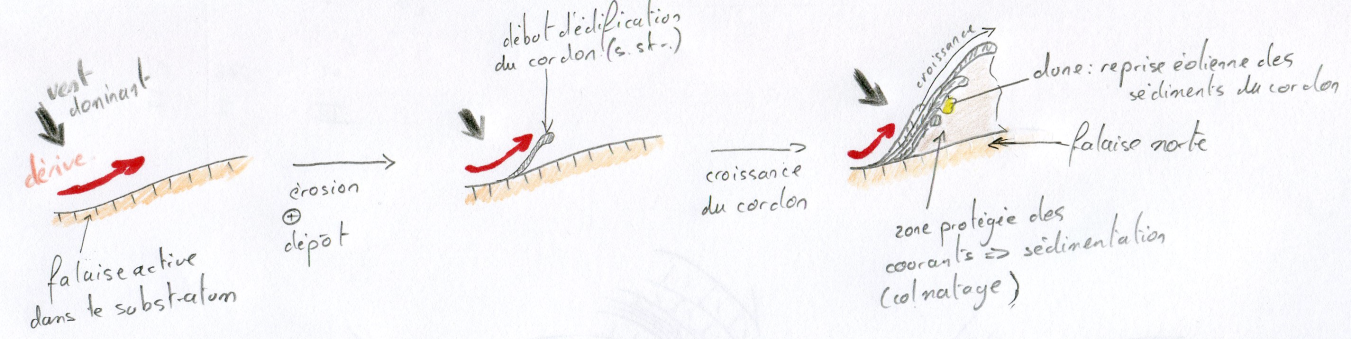 vent
dominant
dérive
falaise active
dans le substratum
érosion
⊕
dépôt
début d'édification
du cordon (s.st.)
croissance
du cordon
croissance
dune : reprise éolienne des
sédiments du cordon
falaise morte
zone protégée des
courants => sédimentation
(colmatage)